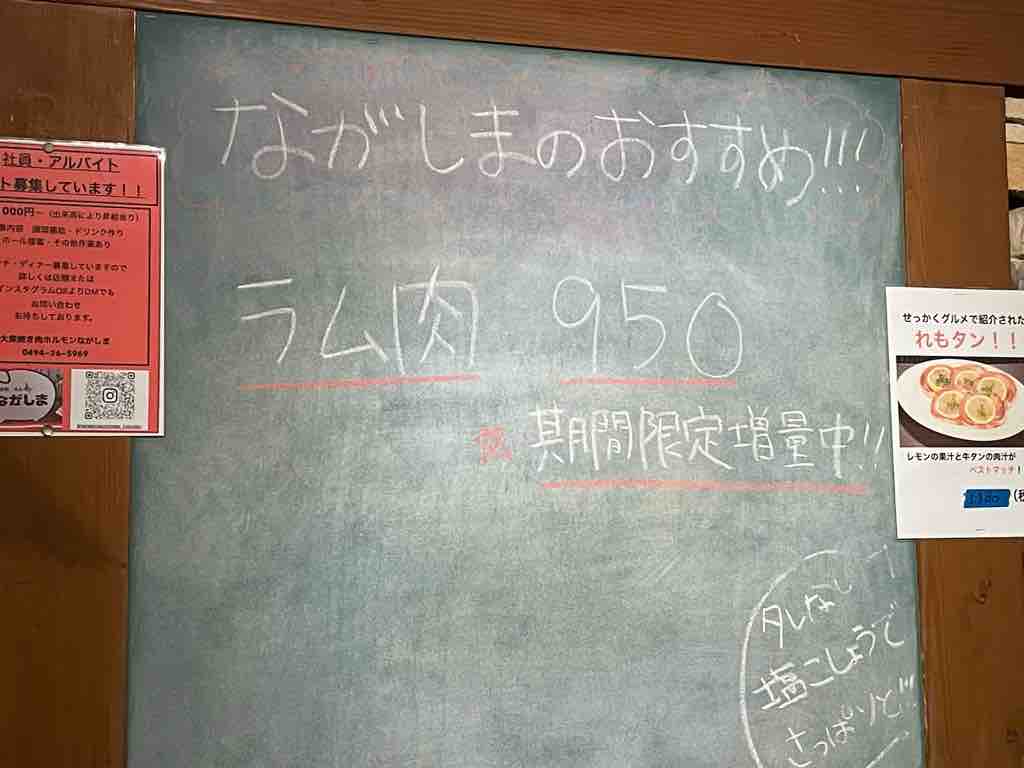 ながしまのおすすめ!!!
ラム肉 950
期間限定増量中!!
タレなし
塩こしょうで
さっぱりと!!
社員・アルバイト
ト募集しています！！
000円～（出来高により昇給あり）
ホール接客・その他作業あり
チ・ディナー募集していますので
詳しくは店頭または
インスタグラムQRよりDMでも
お問い合わせ
お待ちしております。
大衆焼き肉ホルモンながしま
0494-26-5969
ながしま
せっかくグルメで紹介された
れもタン！！
レモンの果汁と牛タンの肉汁が
ベストマッチ！